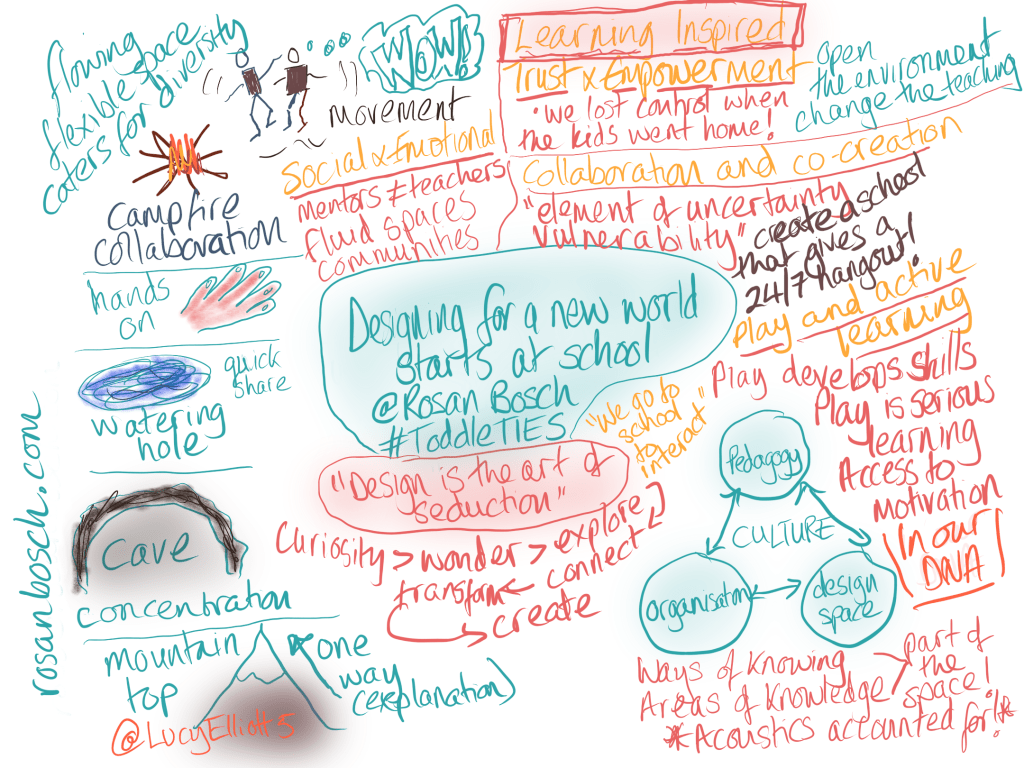 flowing
flexible space
caters for diversity
WOW!
movement
Learning Inspired
Trust x Empowerment
• we lost control when
the kids went home!
open
the environment
change the teaching
Social x Emotional
mentors ≠ teachers
fluid spaces
communities
Collaboration and co-creation
"element of uncertainty
vulnerability"
create a school
that gives a
24/7 hangout!
campfire
collaboration
hands
on
quick
share
watering
hole
cave
concentration
mountain
top
one
way
(explanation)
@LucyElliott5
rosanbosch.com
Designing for a new world
starts at school
@Rosan Bosch
#ToddleTIES
"We go to
school
to
interact"
"Design is the art of
seduction"
Curiosity > wonder > explore
connect
transform
create
Play and active
learning
Play develops skills
Play is serious
learning
Access to
motivation
In our
DNA
Pedagogy
CULTURE
organisation
design
space
Ways of Knowing
Areas of Knowledge
part of
the
space!
*Acoustics accounted for!*